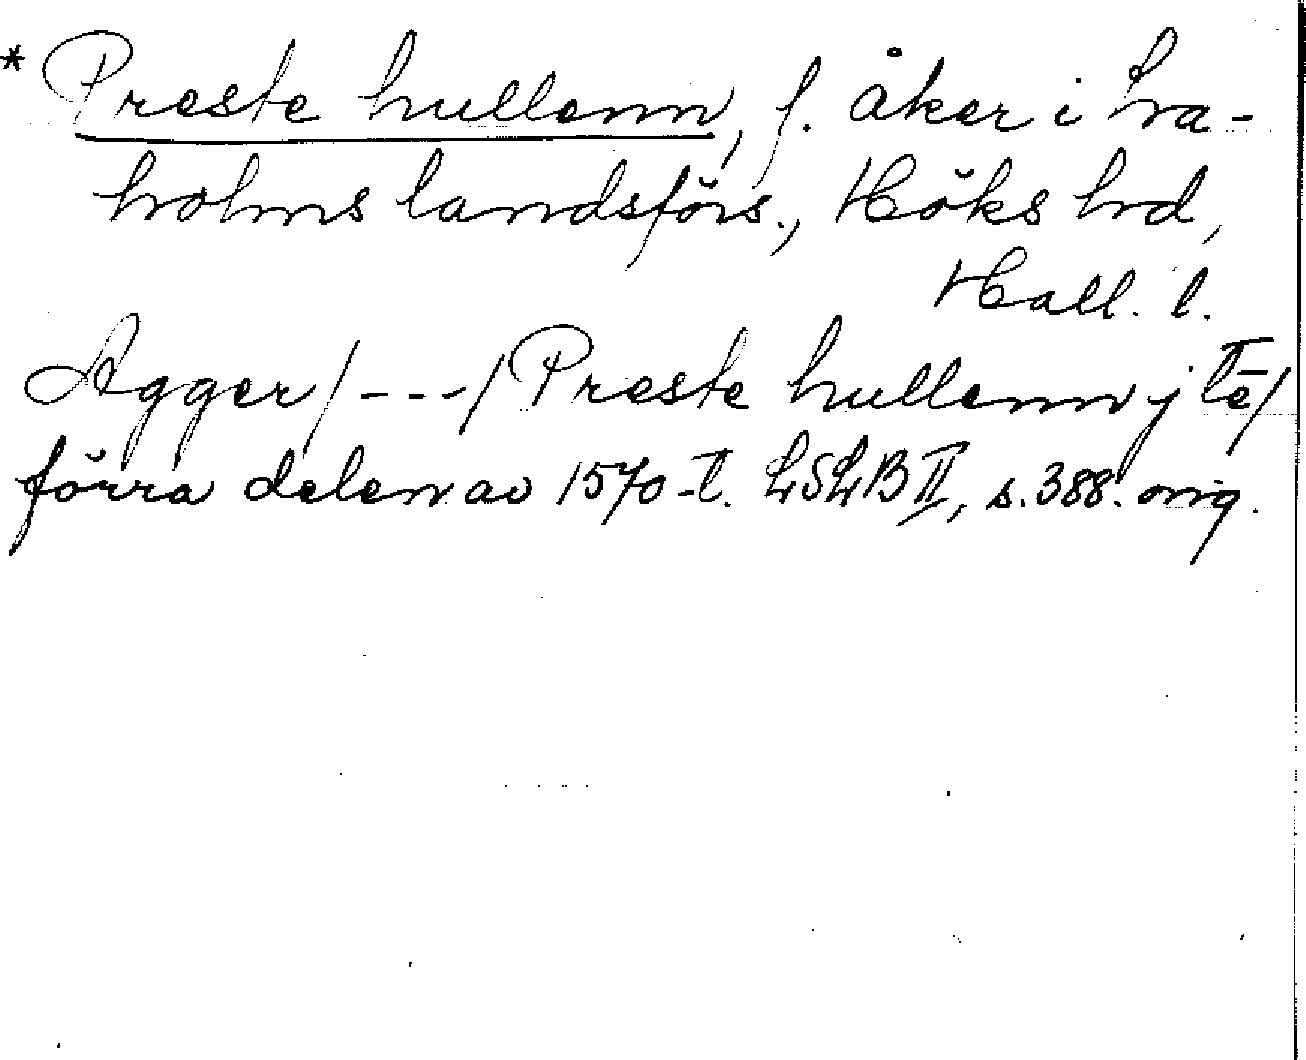 * Preste hullenn, f. åker i La-
holms landsförs., Höks hd,
Hall. l.
Agger /---/ Preste hullenn j tē/
förra delen av 1570-t. LSLB II, s. 388. orig.